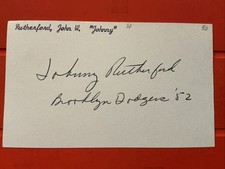 Rutherford, John W. "Johnny"
Johnny Rutherford
Brooklyn Dodgers '52